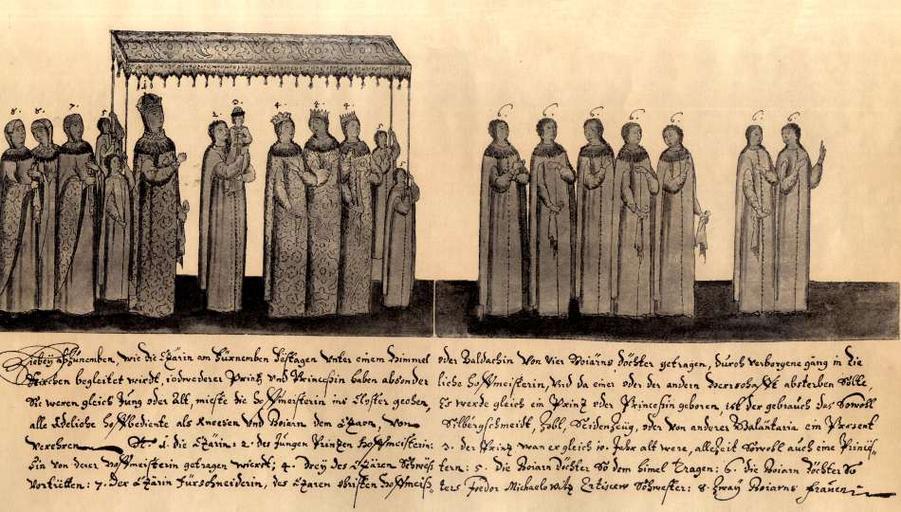 8. 8. 7. 5. 1. 2. 3. 4. 4. 4. 5. 6. 6. 6. 6. 6. 6. 6.
Hiebey abzunemben, wie die Czarin am fürnemben Festagen unter einem Himmel oder Baldachin von vier Boiarns döchter getragen, durch verborgene gäng in die
Kirchen begleitet wirdt, iedwederer Printz und Princessin haben absonderliche hoffmeisterin, und da eines oder der andern versohn absterben solle,
Sie weren gleich Jung oder Alt, mieste die hoffmeisterin ins Closter gechen, Es werde gleich ein Prinz oder Princesin geboren, ist der gebrauch das Sowoll
alle Edeliche hoffbediente als Knessen und Boiarn dem Czaren, von Silbergschmeidt, Zobl, Seidenzeüg, oder von anderes ein Present
verehren. 1. die Czärin: 2. des Jungen Printzen hoffmeisterin: 3. der Printz wan er gleich 10. Jahr alt were, allezeit Sowohl auch eine Prinzess
hin von derer hoffmeisterin getragen wierdt; 4. Drey des Czären Schwestern: 5. die Boiarn döchter So dem himel tragen: 6. die Boiarn döchter So
vortretten: 7. der Czärin fürschneiderin, des Czaren obristen hoffmeisters Foedor Michaelowitz Ertisczew Schwester: 8. zway Boiarns frauen